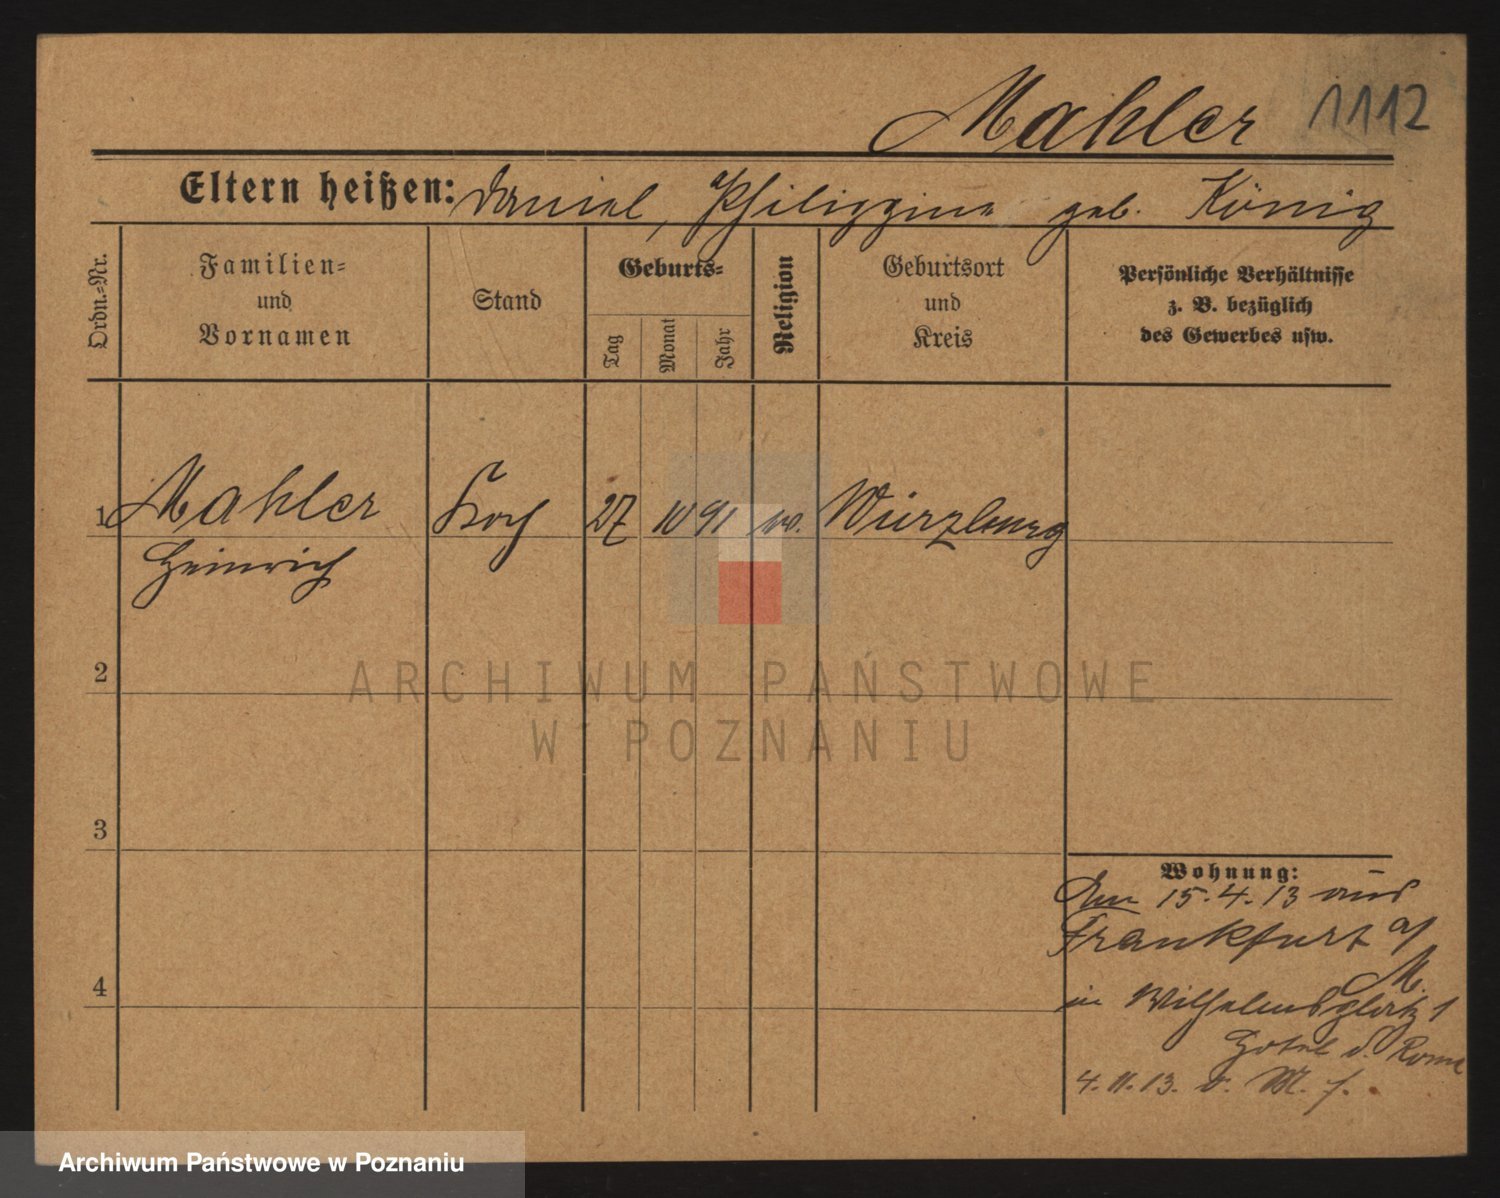 Mahler 1112
Eltern heißen: Daniel, Philippine geb. König
Ordn.-Nr.
Familien-
und
Vornamen
Stand
Geburts-
Tag
Monat
Jahr
Religion
Geburtsort
und
Kreis
Persönliche Verhältnisse
z. B. bezüglich
des Gewerbes usw.
1 Mahler Koch 27 10 91 Würzburg
Heinrich
2
ARCHIWUM PAŃSTWOWE
W POZNANIU
3
Wohnung:
Am 15.4.13 aus
Frankfurt a/
M.
4
in Wilhelmsplatz 1
Hotel d. Rome
4.11.13. v. M. f.
Archiwum Państwowe w Poznaniu